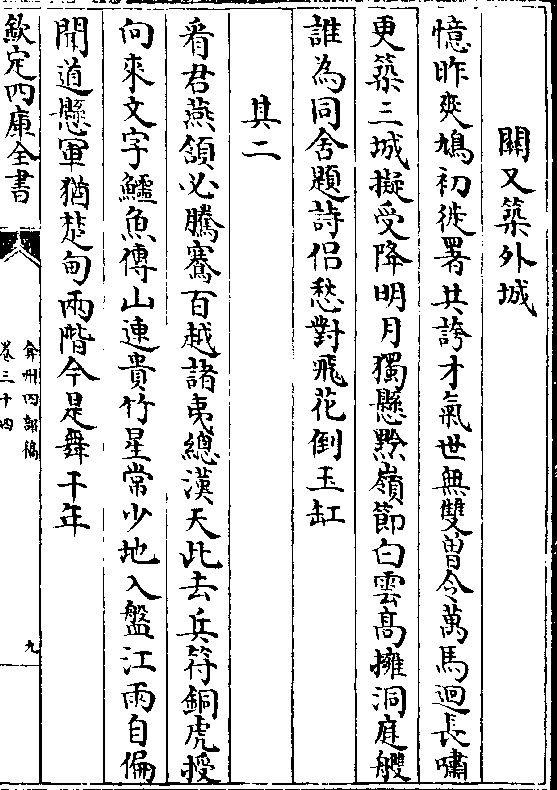 關又築外城
憶昨爽鳩初徙署共誇才氣世無雙曽令萬馬迴長嘯
更築三城擬受降明月獨懸黔嶺節白雲髙擁洞庭艭
誰為同舍題詩侣愁對飛花倒玉缸
其二
看君燕頷必騰騫百越諸夷總漢天此去兵符銅虎授
向來文字鱷魚傳山連貴竹星常少地入盤江雨自偏
聞道懸軍猶楚甸兩階今是舞干年
欽定四庫全書
弇州四部稿
卷三十四
九